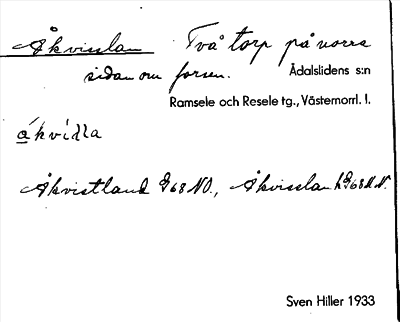 Åkvisslan Två torp på norra
sidan om forsen. Ådalslidens s:n
Ramsele och Resele tg., Västernorrl. l.
Åkvistland G68 NO., Åkvisslan
Sven Hiller 1933